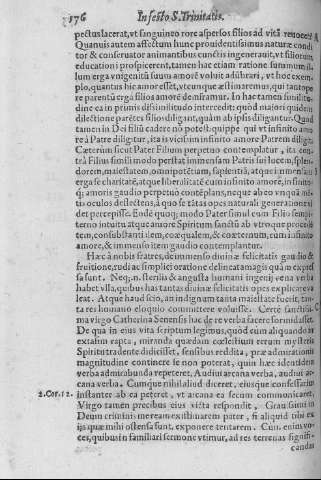 176 In festo S. Trinitatis.
pectus lacerat, vt sanguineo rore aspersos filios ad vitā reuocet?
Quanuis autem affectum hunc prouidentissimus naturæ condi-
tor & conseruator animantibus cunctis ingenerauit, vt filiorum
educationi prospicerent, tamen hac etiam ratione summum il-
lum erga vnigenitū suum amorē voluit adūbrari, vt hoc exem-
plo, quantus hic amor esset, vtcunque æstimaremus, qui tantope
re parentū erga filios amorē demiramur. In hac tamen similitu-
dine ea in primis dissimilitudo intercedit: quòd maiori quidem
dilectione parētes filios diligant, quàm ab ipsis diligantur. Quod
tamen in Dei filiū cadere nō potest: quippe qui vt infinito amo-
re à Patre diligitur, ita is vicissim infinito amore Patrem diligit.
Cæterùm sicut Pater Filium perpetuo contemplatur, ita con-
trà Filius simili modo perstat immensam Patris sui lucem, splen-
dorem, maiestatem, omnipotētiam, sapientiā, atque immensam
erga se charitatē, atque liberalitatē cum infinito amore, & infinito-
que amoris gaudio perpetuò contēplans, neque ab eo vnquā mē-
tis oculos deflectens, à quo se tātas opes naturali generatione vi-
det percepisse. Eodē quoque modo Pater simul cum Filio sempi-
terno intuitu atque amore Spiritum sanctū ab vtroque procedē-
tem, consubstantialem, coæqualem, & coæternum, cum infinito
amore, & immenso item gaudio contemplantur.
Hæc à nobis fratres, de immenso diuinæ felicitatis gaudio &
fruitione, rudi ac simplici oratione delineata magis quàm expres-
sa sunt. Neque enim sterilis & angusta humani ingenij vena verba
habet vlla, quibus has tantas diuinæ felicitatis opes explicare va-
leat. Atque haud scio, an indignum tanta maiestate fuerit, tan-
ta res humano eloquio committere voluisse. Certè sanctissi-
ma virgo Catherina Senensis hac de re verba facere formidasset.
De qua in eius vita scriptum legimus, quòd cum aliquando in
extasim rapta, miranda quædam cœlestium rerum mysteria
Spiritu tradente didicisset, sensibus reddita, præ admirationis
magnitudine continere se non poterat, quin hæc identidem
verba admirabunda repeteret, Audiui arcana verba, audiui ar-
cana verba. Cumque nihil aliud diceret, eiusque confessarius
2. Cor. 12. instanter ab ea peteret, vt arcana ea secum communicaret,
Virgo tamen precibus eius victa respondit, Grauissimū in
Deum crimē me ream existimarem pater, si aliquid tibi ex
ijs quæ mihi ostensa sunt, exponere tentarem. Cum enim vo-
ces, quibus in familiari sermone vtimur, ad res terrenas signifi-
candas